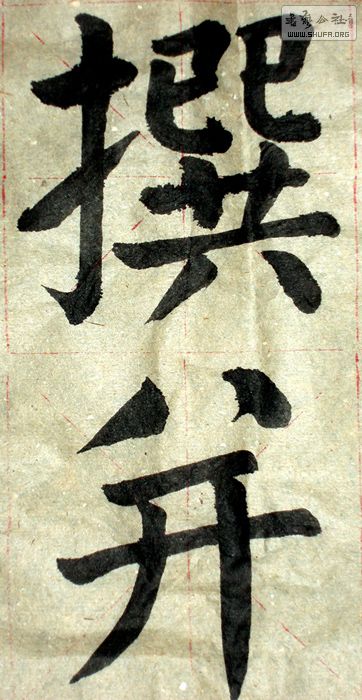 书法公社
WWW.SHUFA.ORG
撰
并